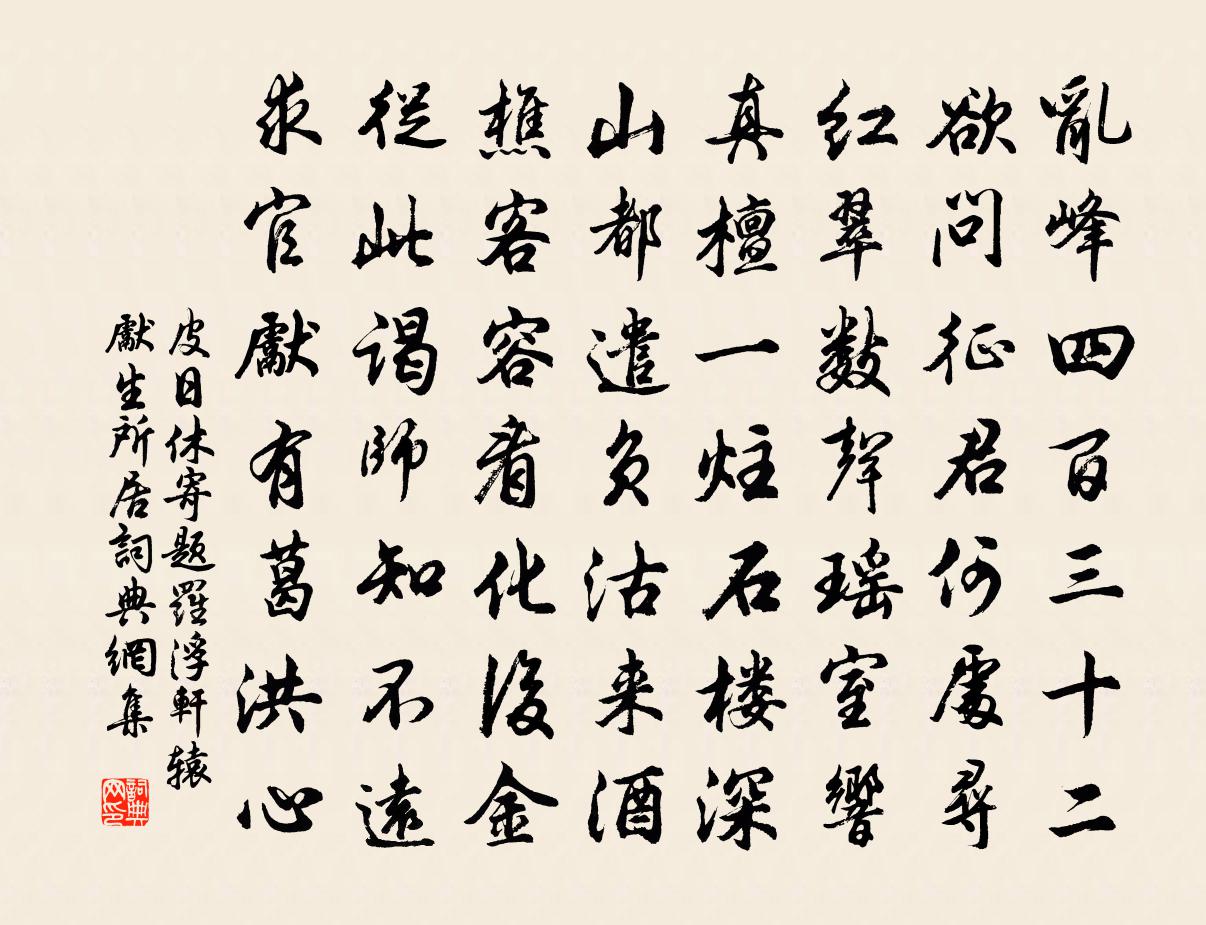 亂峰四百三十二
欲問征君何處尋
红翠數聲瑶室響
真檀一炷石楼深
山都遣负沽来酒
樵客容看化後金
從此谒師知不遠
求官獻有葛洪心
皮日休寄题羅浮軒辕
獻生所居詞典網集
詞典
网印